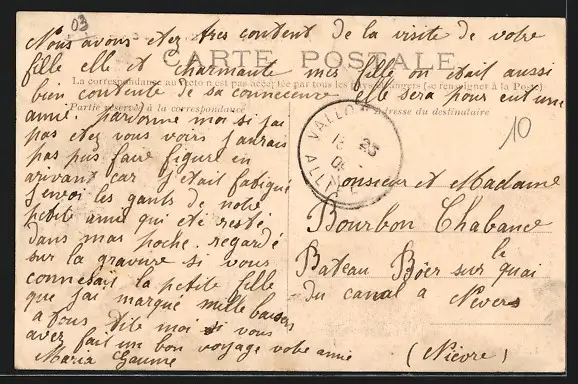 03
Nous avons etez tres content de la visite de votre
CARTE POSTALE
fille elle et charmante mes fille on etait aussi
La correspondance au recto n'est pas acceptée par tous les pays étrangers (se renseigner à la Poste)
bien contente de sa connecence elle sera pour eut une
Partie réservée à la correspondance
Adresse du destinataire
amie. pardonne moi si j'ai
pas etez vous voir j'aurais
pas pus faire figure en
arivant car j'etait fatigué
j'envoi les gants de notre
petite amie qui eté resté
dans mas poche. regardé
sur la gravure si vous
connesait la petite fille
que j'ai marqué mille baisers
a tous dite moi si vous
avez fait un bon voyage votre amie
Maria
VALLON
ALLIER
10
Monsieur et Madame
Bourbon Chabance
Bateau Böer sur le quai
du canal a Nevers
(Nièvre)